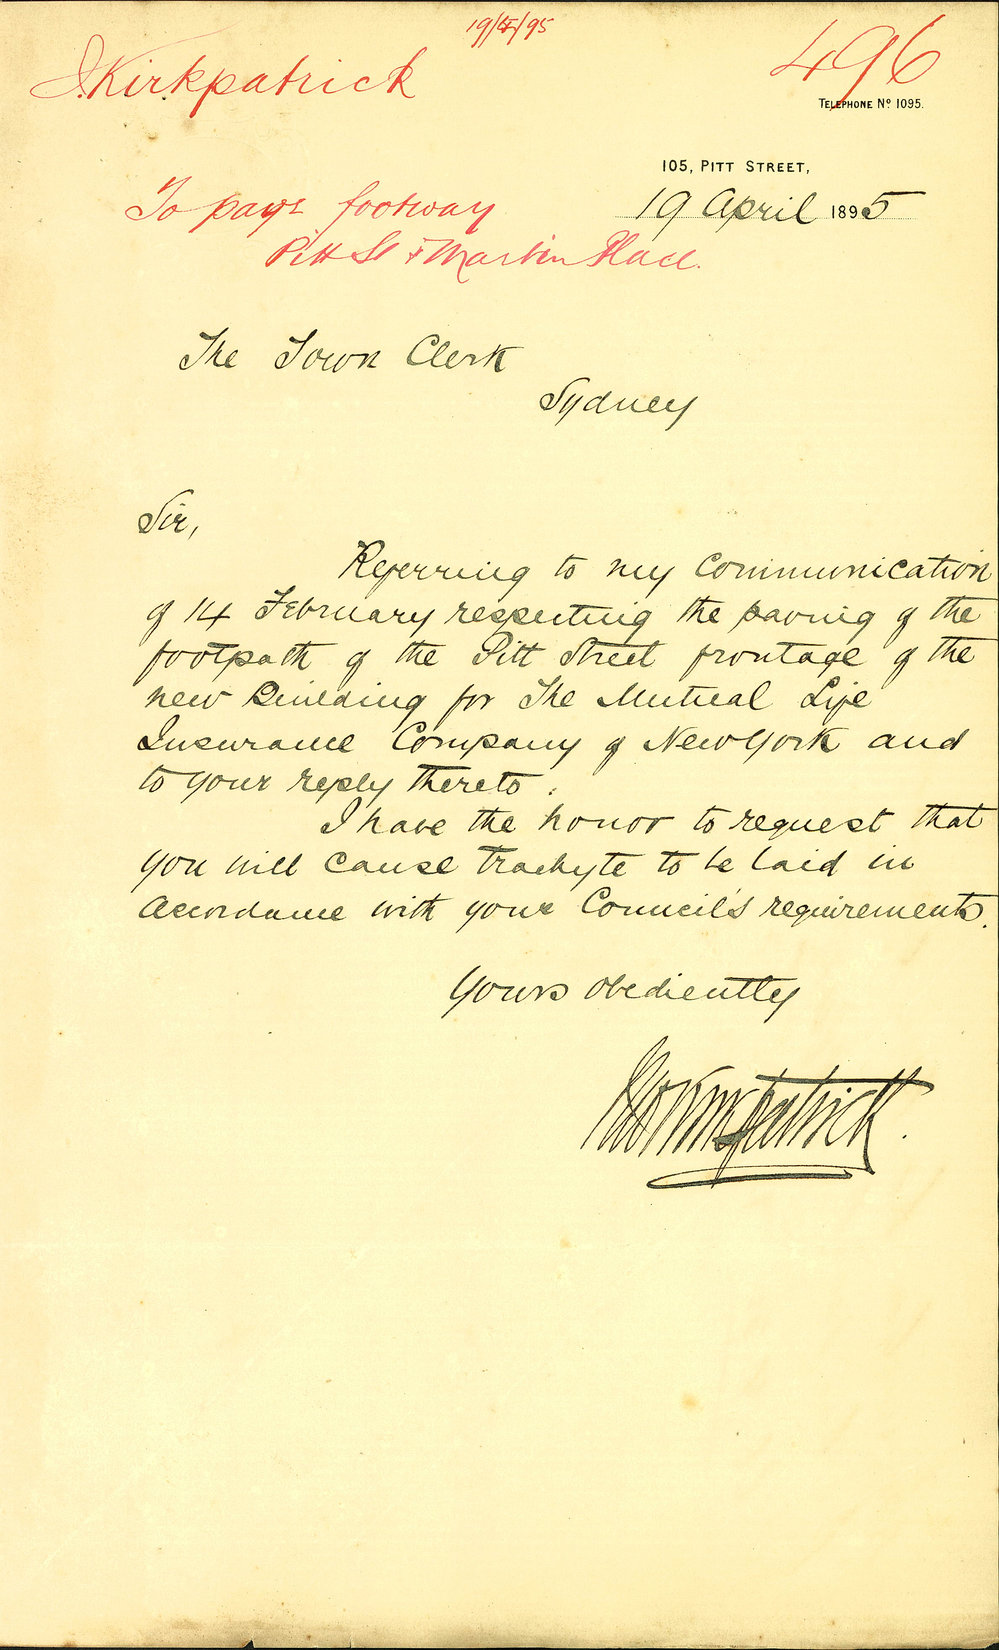 19/4/95
J. Kirkpatrick
496
TELEPHONE Nº 1095.
105, PITT STREET,
To pave footway
19 April 1895
Pitt St & Martin Place.
The Town Clerk
Sydney
Sir,
Referring to my communication
of 14 February respecting the paving of the
footpath of the Pitt Street frontage of the
new Building for The Mutual Life
Insurance Company of New York and
to your reply thereto.
I have the honor to request that
you will cause trachyte to be laid in
accordance with your Council's requirements.
Yours obediently
Jno Kirkpatrick.